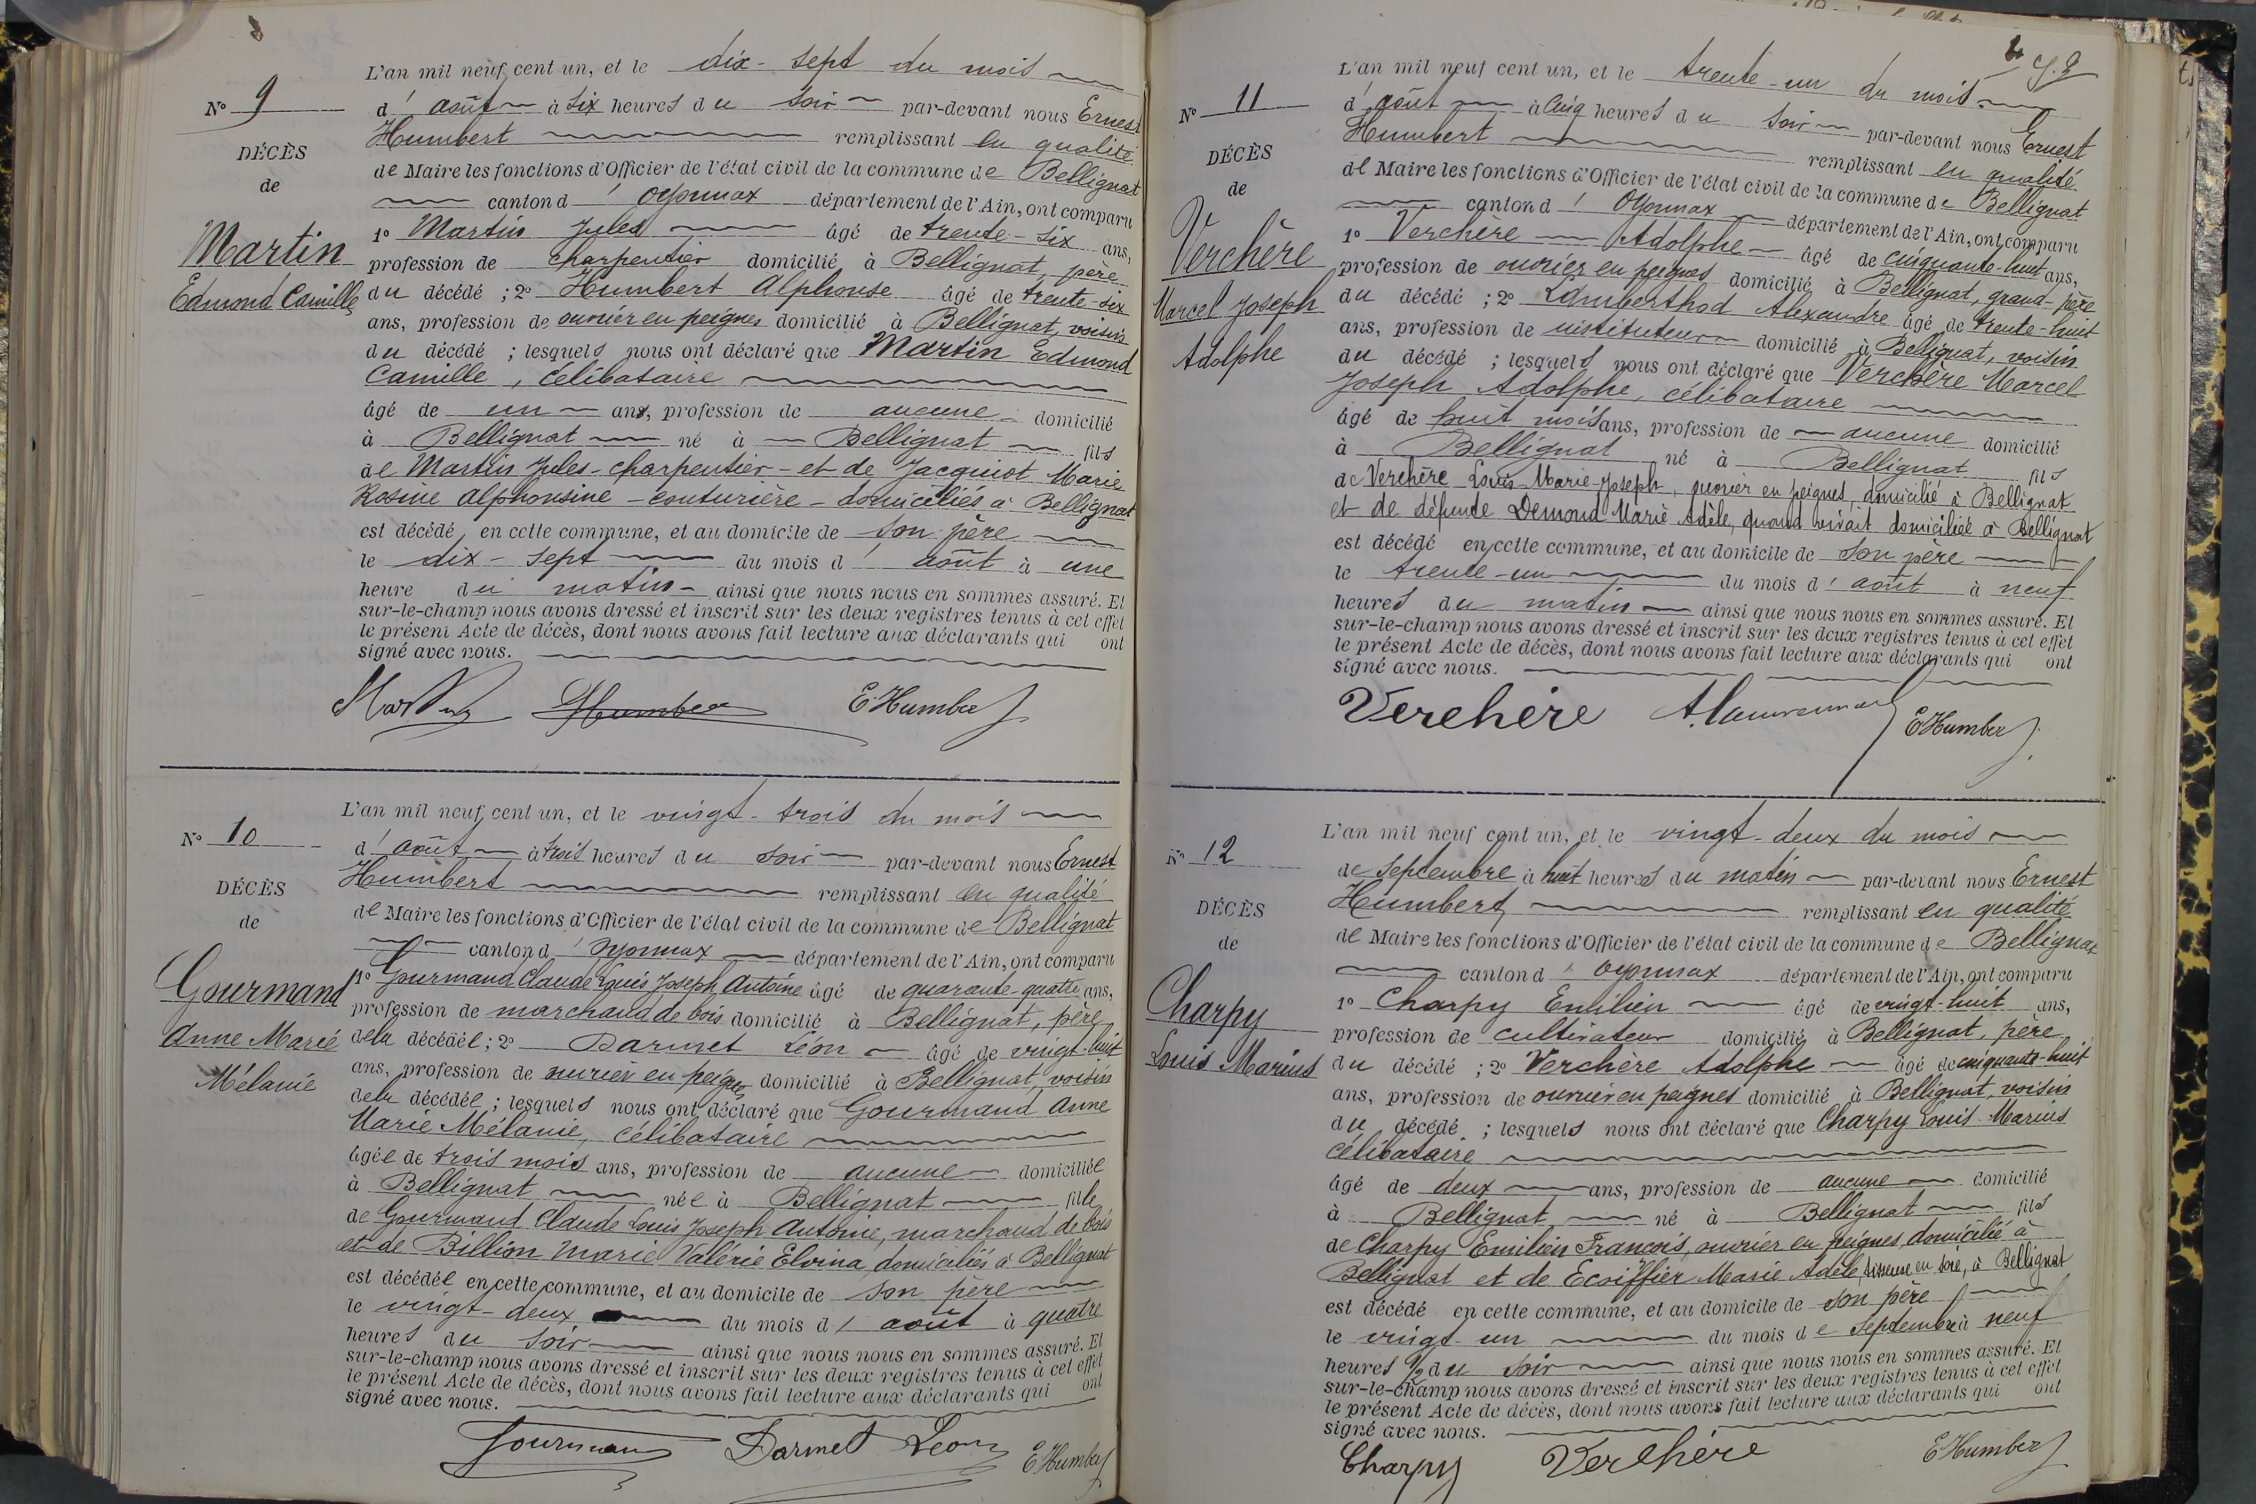 N° 9
DÉCÈS
de
Martin
Edmond Camille
L'an mil neuf cent un, et le dix-sept du mois
d'août à six heures du soir par-devant nous Ernest
Humbert remplissant en qualité
de Maire les fonctions d'Officier de l'état civil de la commune de Bellignat
canton d'Oyonnax département de l'Ain, ont comparu
1° Martin Jules âgé de trente-six ans,
profession de charpentier domicilié à Bellignat, père
du décédé ; 2° Humbert Alphonse âgé de trente-six
ans, profession de ouvrier en peignes domicilié à Bellignat, voisin
du décédé ; lesquels nous ont déclaré que Martin Edmond
Camille, célibataire
âgé de un ans, profession de aucune domicilié
à Bellignat né à Bellignat fils
de Martin Jules - charpentier - et de Jacquiot Marie
Rosine Alphonsine - couturière - domiciliés à Bellignat
est décédé en cette commune, et au domicile de son père
le dix-sept du mois d'août à une
heure du matin - ainsi que nous nous en sommes assuré. Et
sur-le-champ nous avons dressé et inscrit sur les deux registres tenus à cet effet
le présent Acte de décès, dont nous avons fait lecture aux déclarants qui ont
signé avec nous.
Martin Humbert E Humbert
N° 10
DÉCÈS
de
Gourmand
Anne Marie
Mélanie
L'an mil neuf cent un, et le vingt-trois du mois
d'août à trois heures du soir par-devant nous Ernest
Humbert remplissant en qualité
de Maire les fonctions d'Officier de l'état civil de la commune de Bellignat
canton d'Oyonnax département de l'Ain, ont comparu
1° Gourmand Claude Louis Joseph Antoine âgé de quarante-quatre ans,
profession de marchand de bois domicilié à Bellignat, père
de la décédée ; 2° Darmet Léon âgé de vingt-huit
ans, profession de ouvrier en peignes domicilié à Bellignat, voisin
de la décédée ; lesquels nous ont déclaré que Gourmand Anne
Marie Mélanie, célibataire
âgée de trois mois ans, profession de aucune domiciliée
à Bellignat née à Bellignat fille
de Gourmand Claude Louis Joseph Antoine, marchand de bois
et de Billion Marie Valérie Elvina, domiciliés à Bellignat
est décédée en cette commune, et au domicile de son père
le vingt-deux du mois d'août à quatre
heures du soir ainsi que nous nous en sommes assuré. Et
sur-le-champ nous avons dressé et inscrit sur les deux registres tenus à cet effet
le présent Acte de décès, dont nous avons fait lecture aux déclarants qui ont
signé avec nous.
Gourmand Darmet Léon E Humbert
N° 11
DÉCÈS
de
Verchère
Marcel Joseph
Adolphe
L'an mil neuf cent un, et le trente-un du mois
d'août à cinq heures du soir par-devant nous Ernest
Humbert remplissant en qualité
de Maire les fonctions d'Officier de l'état civil de la commune de Bellignat
canton d'Oyonnax département de l'Ain, ont comparu
1° Verchère Adolphe âgé de cinquante-huit ans,
profession de ouvrier en peignes domicilié à Bellignat, grand-père
du décédé ; 2° Alexandre âgé de trente-huit
ans, profession de instituteur domicilié à Bellignat, voisin
du décédé ; lesquels nous ont déclaré que Verchère Marcel
Joseph Adolphe, célibataire
âgé de huit mois ans, profession de aucune domicilié
à Bellignat né à Bellignat fils
de Verchère Louis Marie Joseph, ouvrier en peignes, domicilié à Bellignat
et de défunte Demond Marie Adèle, quand vivait domiciliée à Bellignat
est décédé en cette commune, et au domicile de son père
le trente-un du mois d'août à neuf
heures du matin ainsi que nous nous en sommes assuré. Et
sur-le-champ nous avons dressé et inscrit sur les deux registres tenus à cet effet
le présent Acte de décès, dont nous avons fait lecture aux déclarants qui ont
signé avec nous.
Verchère E Humbert
N° 12
DÉCÈS
de
Charpy
Louis Marius
L'an mil neuf cent un, et le vingt-deux du mois
de septembre à huit heures du matin par-devant nous Ernest
Humbert remplissant en qualité
de Maire les fonctions d'Officier de l'état civil de la commune de Bellignat
canton d'Oyonnax département de l'Ain, ont comparu
1° Charpy Emilien âgé de vingt-huit ans,
profession de cultivateur domicilié à Bellignat, père
du décédé ; 2° Verchère Adolphe âgé de cinquante-huit
ans, profession de ouvrier en peignes domicilié à Bellignat, voisin
du décédé ; lesquels nous ont déclaré que Charpy Louis Marius
célibataire
âgé de deux ans, profession de aucune domicilié
à Bellignat né à Bellignat fils
de Charpy Emilien François, ouvrier en peignes, domicilié à
Bellignat et de Ecoiffier Marie Adèle, tisseuse en soie, à Bellignat
est décédé en cette commune, et au domicile de son père
le vingt-un du mois de septembre à neuf
heures 1/2 du soir ainsi que nous nous en sommes assuré. Et
sur-le-champ nous avons dressé et inscrit sur les deux registres tenus à cet effet
le présent Acte de décès, dont nous avons fait lecture aux déclarants qui ont
signé avec nous.
Charpy Verchère E Humbert